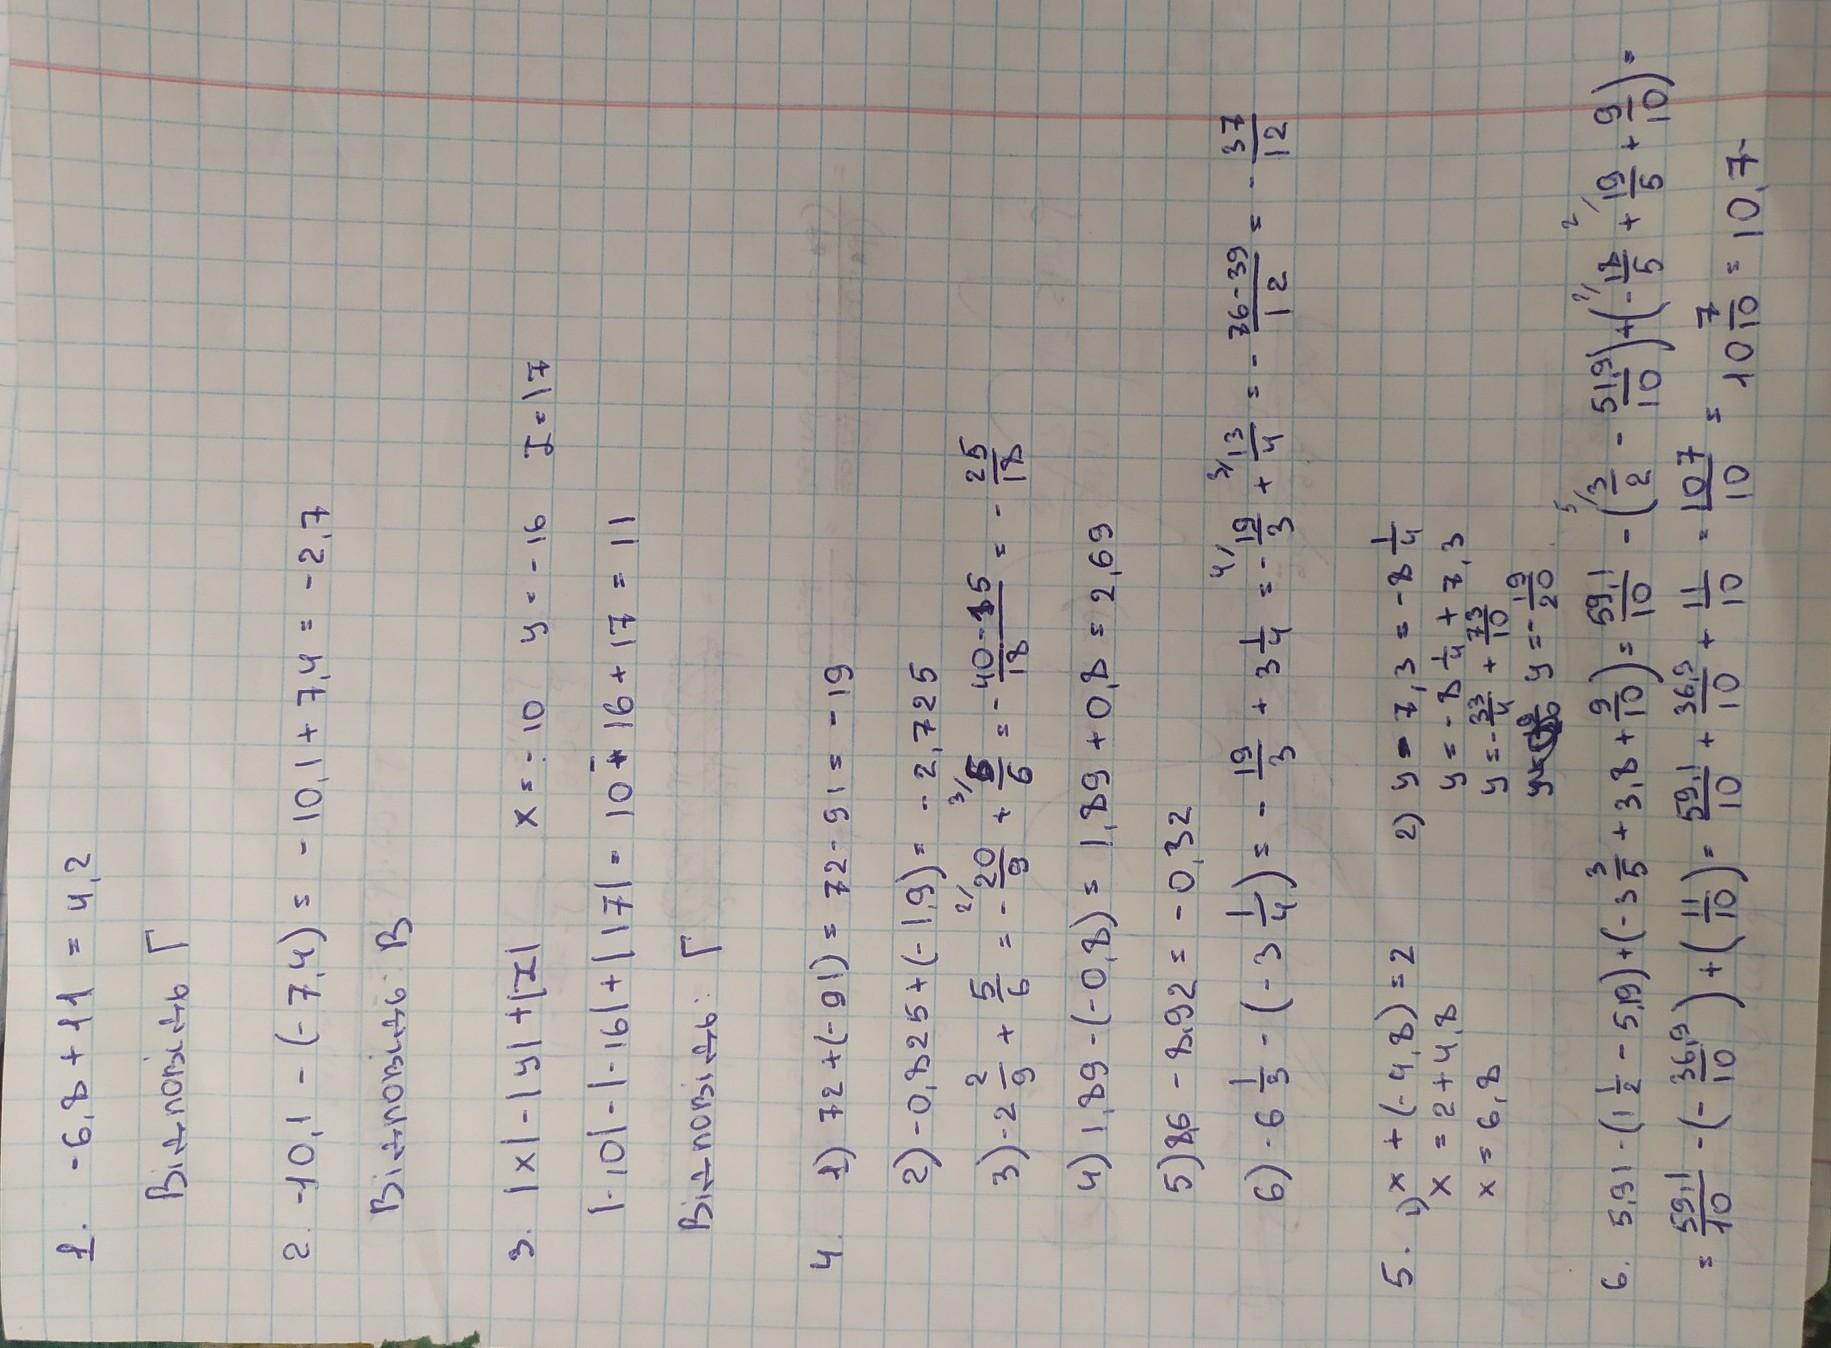 1. -6,8 + 11 = 4,2
Відповідь Г
2. -10,1 - (-7,4) = -10,1 + 7,4 = -2,7
Відповідь: В
3. |x| - |y| + |z| x = -10 y = -16 z = 17
|-10| - |-16| + |17| = 10 - 16 + 17 = 11
Відповідь: Г
4. 1) 72 + (-91) = 72 - 91 = -19
2) -0,825 + (-1,9) = -2,725
3) -2 2/9 + 5/6 = - 2/ 20/9 + 3/ 5/6 = - 40-15/18 = - 25/18
4) 1,89 - (-0,8) = 1,89 + 0,8 = 2,69
5) 8,6 - 8,92 = -0,32
6) -6 1/3 - (-3 1/4) = - 19/3 + 3 1/4 = - 4/ 19/3 + 3/ 13/4 = - 76-39/12 = - 37/12
5. 1) x + (-4,8) = 2
x = 2 + 4,8
x = 6,8
2) y - 7,3 = -8 1/4
y = -8 1/4 + 7,3
y = - 33/4 + 73/10
y = - 19/20
6. 5,91 - (1 1/2 - 5,19) + (-3 3/5 + 3,8 + 9/10) = 59,1/10 - (5/ 3/2 - 51,9/10) + (- 2/ 18/5 + 2/ 19/5 + 9/10) =
= 59,1/10 - (- 36,9/10) + (11/10) = 59,1/10 + 36,9/10 + 11/10 = 107/10 = 10 7/10 = 10,7